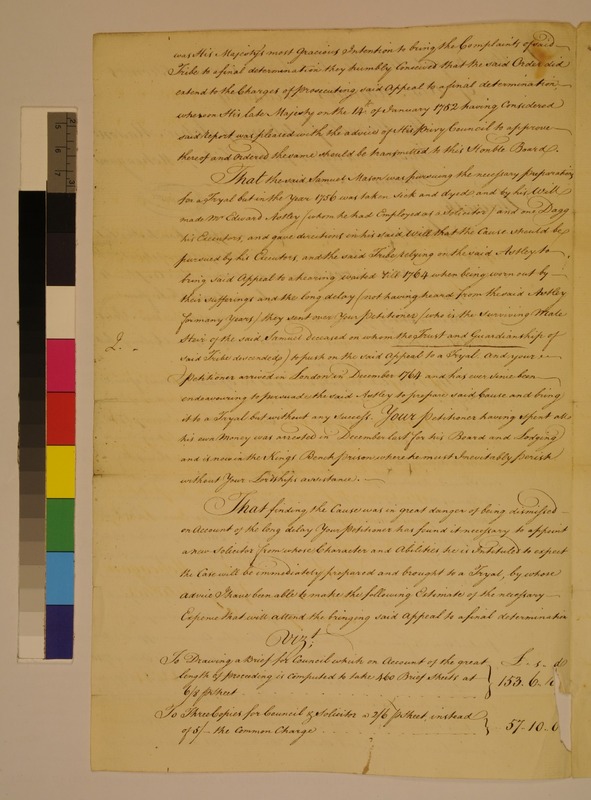 was His Majesty's most Gracious Intention to bring the Complaints of said
Tribe to a final determination they humbly Conceived that the said Order did
extend to the Charges of Prosecuting said Appeal to a final determination
whereon His late Majesty on the 14th of January 1752 having Considered
said Report was pleased with the advice of His Privy Council to approve
thereof and ordered the same should be transmitted to this Honble Board.
That the said Samuel Mason was pursuing the necessary preparation
for a Tryal but in the Year 1756 was taken Sick and dyed and by his Will
made Mr Edward Astley (whom he had Employed as a Solicitor) and one Dagg
his Executors, and gave directions in his said Will that the Cause should be
pursued by his Executors, and the said Tribe relying on the said Astley to
bring said Appeal to a hearing waited till 1764 when being worn out by
their sufferings and the long delay (not having heard from the said Astley
for many Years) they sent over Your Petitioner (who is the surviving Male
Heir of the said Samuel deceased on whom the Trust and Guardianship of
2. said Tribe descended) to push on the said Appeal to a Tryal. And your
Petitioner arrived in London in December 1764 and has ever since been
endeavouring to persuade the said Astley to prepare said Cause and bring
it to a Tryal but without any Success. Your Petitioner having spent all
his own Money was arrested in December last for his Board and Lodging
and is now in the Kings Bench prison where he must Inevitably perish
without Your Lordships assistance.
That finding the Cause was in great danger of being dismissed
on Account of the long delay Your Petitioner has found it necessary to appoint
a new Solicitor from whose Character and Abilities he is Intituled to expect
the Case will be immediately prepared and brought to a Tryal, by whose
advice I have been able to make the following Estimate of the necessary
Expence that will attend the bringing said Appeal to a final determination
Vizt.
£. s. d
To Drawing a Brief for Council which on Account of the great
length of proceeding is computed to take 460 Brief Sheets at
6/8 p Sheet 153. 6.
To Three Copies for Council & Solicitor a 2/6 p Sheet, instead
of 5/- the Common Charge 57-10-0